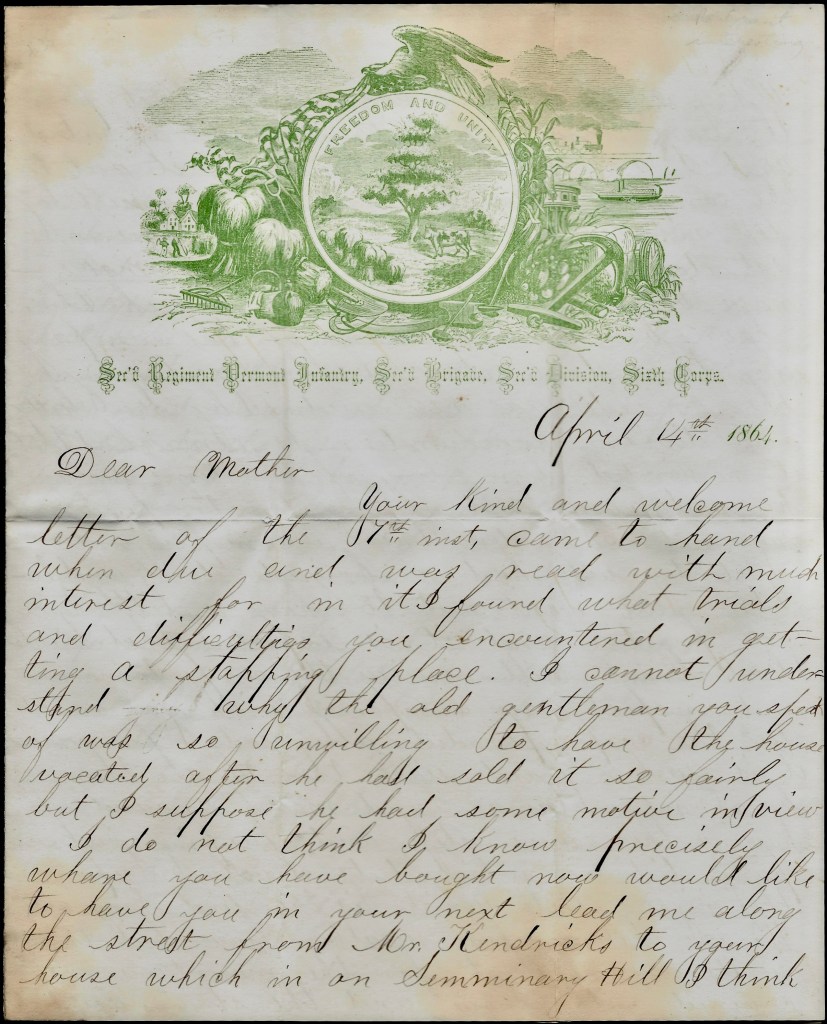 FREEDOM AND UNITY
Sec'd Regiment Vermont Infantry, Sec'd Brigade, Sec'd Division, Sixth Corps.
April 14th 1864.
Dear Mother
Your kind and welcome
letter of the 7th inst, came to hand
when due and was read with much
interest for in it I found what trials
and difficultigs you encountered in get-
ting a stopping place. I cannot under
stand why the old gentleman you speak
of was so unwilling to have the house
vacated after he had sold it so fairly
but I suppose he had some motive in view
I do not think I know precisely
whare you have bought now would like
to have you in your next lead me along
the street from Mr. Kendricks to your
house which in on Semminary Hill I think